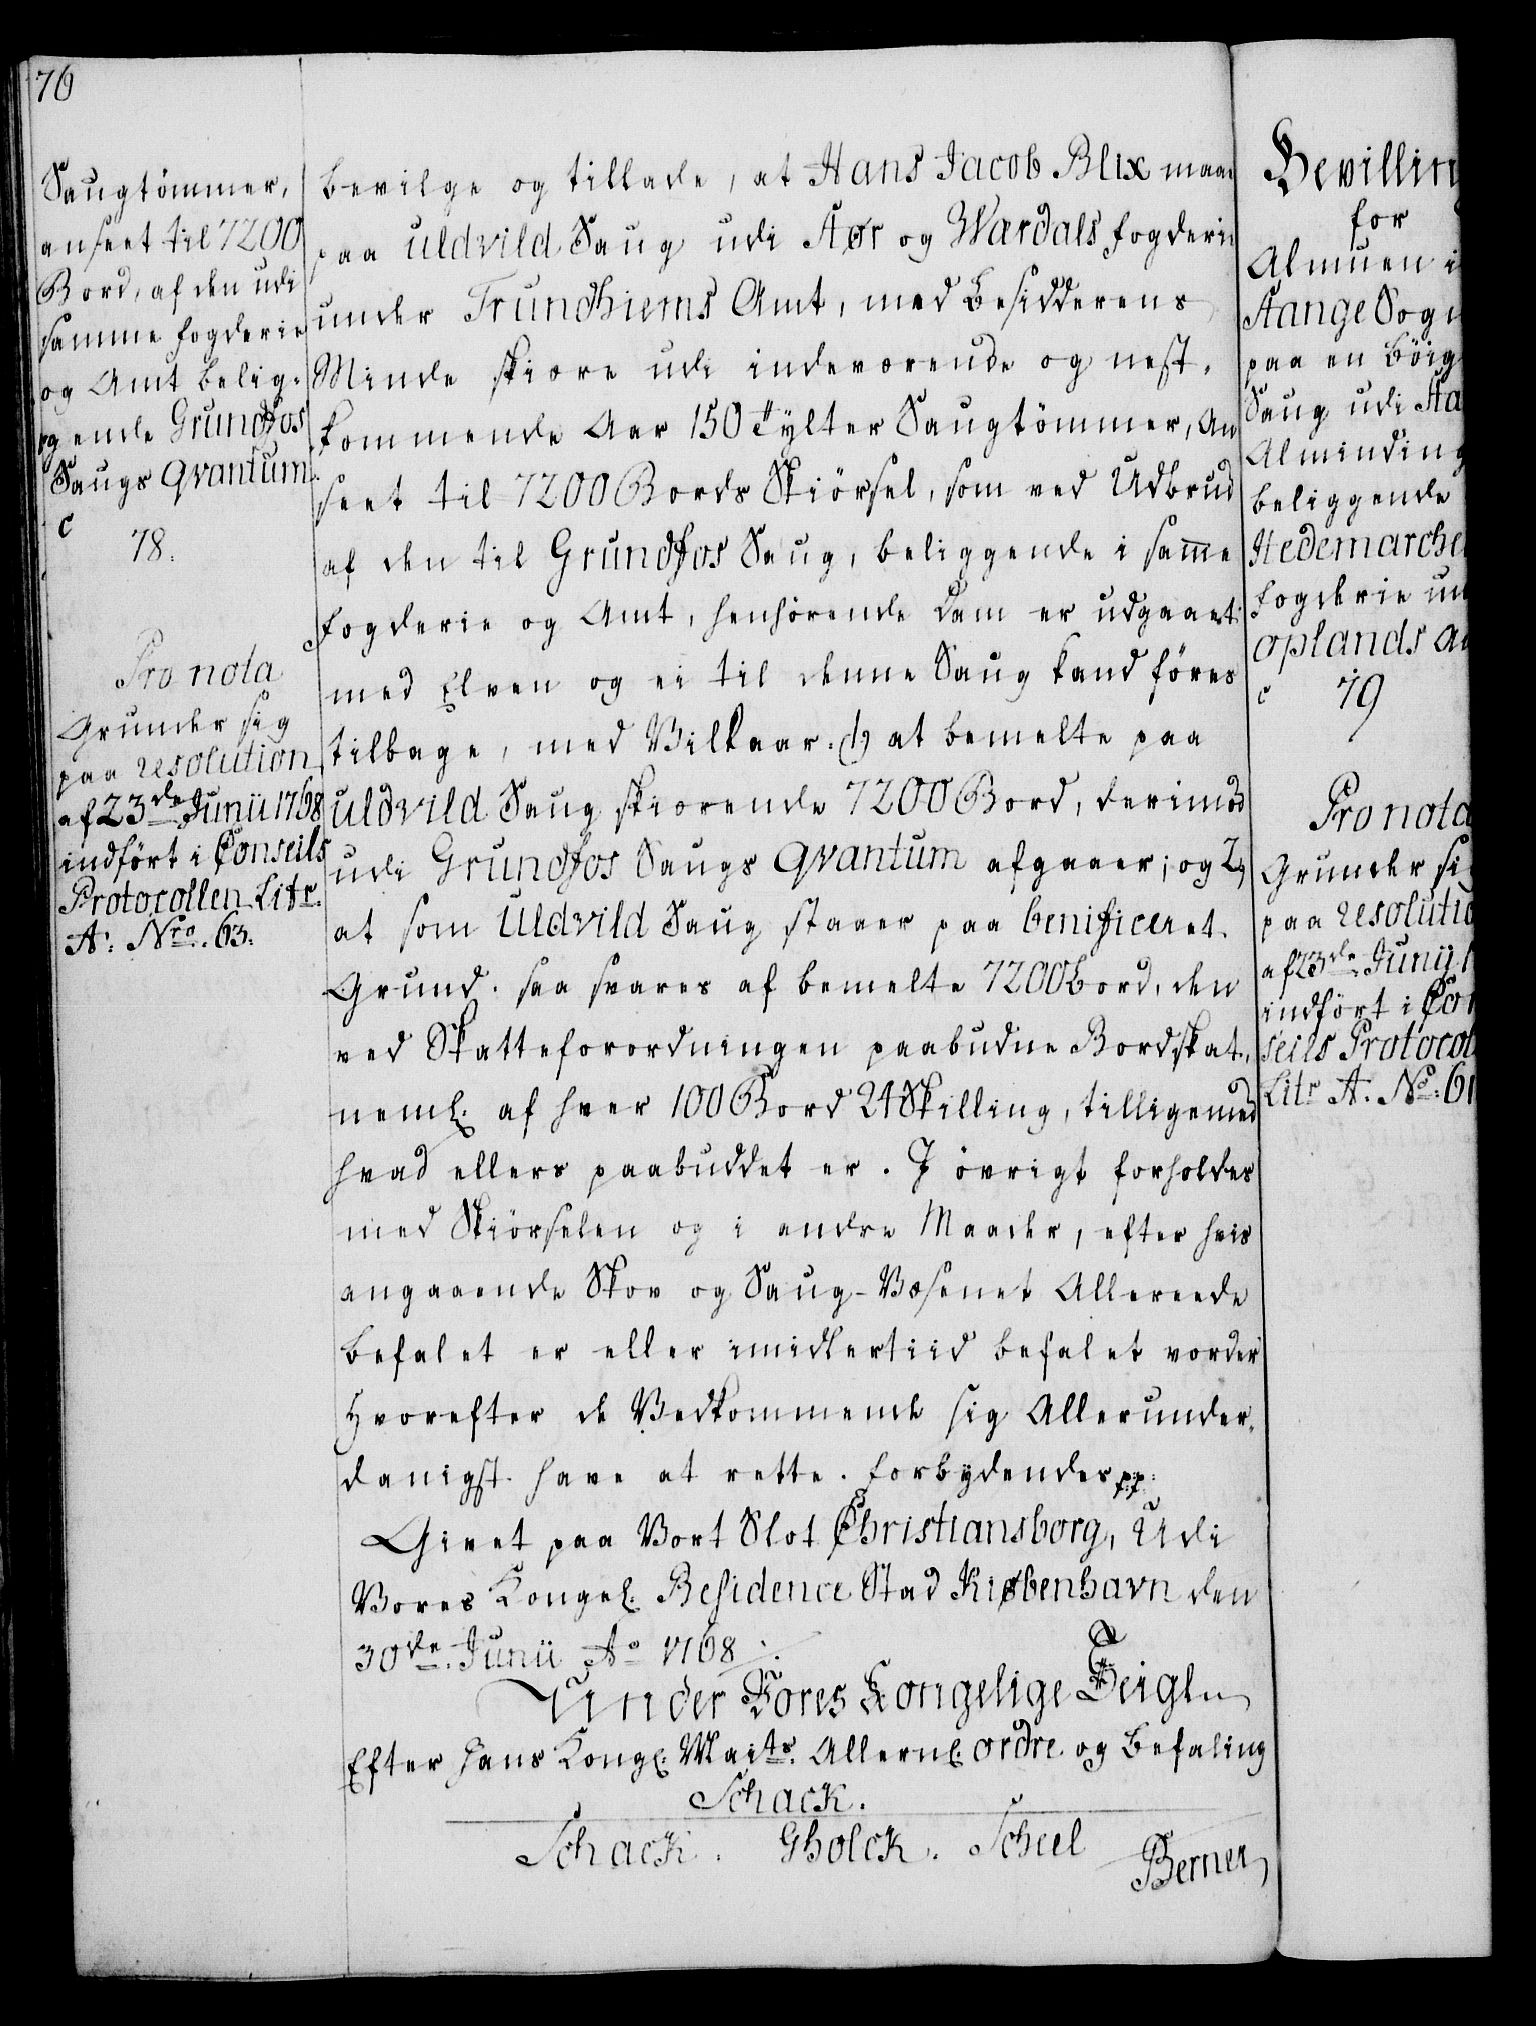 76
Saugtömmer,
anseet til 7200
Bord, af den udi
samme fogderie
og Amt belig-
gende Grundfos
Saugs Qvantum.
c
78.
Pro nota
Grunder sig
paa resolution
af 23de Junii 1768
indfört i Conseils
Protocollen Litr.
A: Nro. 63.
bevilge og tillade, at Hans Jacob Blix maae
paa Uldvild Saug udi Stør og Wardals fogderie
under Trundhiems Amt, med Besidderens
Minde skiære udi indeværende og nest-
kommende Aar 150 Tylter Saugtömmer, An
seet til 7200 Bords Skiörsel, som ved Udbrud
af den til Grundfos Saug, beliggende i samme
fogderie og Amt, henhörende Dam er udgaaet
med Elven og ei til denne Saug kand föres
tilbage, med Vilkaar. 1) at bemelte paa
Uldvild Saug skiærende 7200 Bord, derimod
udi Grundfos Saugs Qvantum afgaaer; og 2)
at som Uldvild Saug staaer paa beneficeret
Grund. saa svares af bemelte 7200 Bord, den
ved Skatteforordningen paabudne Bordskat,
neml. af hver 100 Bord 24 Skilling, tilligemed
hvad ellers paabuddet er. I övrigt forholdes
med Skiörselen og i andre Maader, efter hvis
angaaende Skov og Saug-Væsenet Allereede
befalet er eller imidlertiid befalet vorder
Hvorefter de Vedkommende sig Allerunder-
danigst have at rette. forbydendes p:p:
Givet paa Vort Slot Christiansborg, Udi
Vores Kongel. Residence Stad Kiøbenhavn den
30de Junii Ao 1768 /.
Under Vores Kongelige Seigln
Efter Hans Kongl. Maits. Allernl. ordre og befaling
Schack.
Schack. Gholck. Scheel
Berner
Bevilling
for
Almuen i
Stange Sogn
paa en Böig
Saug udi Sta
Alminding
beliggende
Hedemarche
fogderie un
Oplands Am
c 79
Pro nota
Grunder sig
paa resolutio
af 23de Junii 1
indfört i Con
seils Protocol
Litr A. No: 61